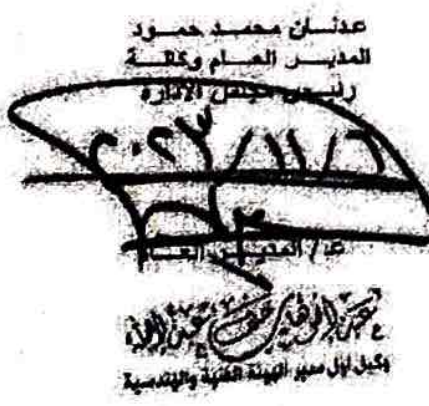 عدنان محمد حمود
المدير العام وكالة
رئيس مجلس الادارة
٢٠٢٣/١١/٦
ع/ المدير العام
عبد الوهاب خلف عبد الله
وكيل اول مدير الهيئة الفنية والهندسية